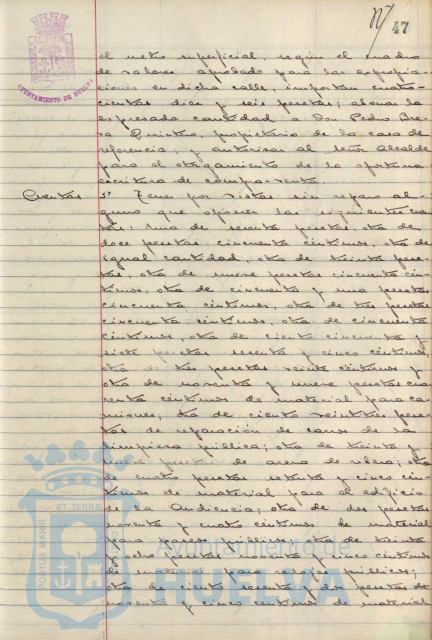 47
AYUNTAMIENTO DE HUELVA
el metro superficial, según el cuadro
de valores aprobado para las expropia-
ciones en dicha calle, importan cuatro-
cientas diez y seis pesetas; abonar la
expresada cantidad a Don Pedro
Quintero, propietario de la casa de
referencia, y autorizar al señor Alcalde
para el otorgamiento de la oportuna
escritura de compra-venta.
Cuentas
Tener por vistas sin reparo al-
guno que oponer las siguientes cuen-
tas: Una de sesenta pesetas, otra de
doce pesetas cincuenta céntimos, otra de
igual cantidad, otra de treinta pese-
tas, otra de nueve pesetas cincuenta cén-
timos, otra de cincuenta y una pesetas
cincuenta céntimos, otra de tres pesetas
cincuenta céntimos, otra de cincuenta
céntimos, otra de ciento cincuenta y
siete pesetas sesenta y cinco céntimos,
otra de tres pesetas veinte céntimos y
otra de noventa y nueve pesetas cua-
renta céntimos de material para ca-
miones; otra de ciento veintitres pese-
tas de reparación de carros de la
limpieza pública; otra de treinta y
nueve pesetas de arena de ; otra
de cuatro pesetas setenta y cinco cén-
timos de material para el edificio
de la Audiencia; otra de dos pesetas
noventa y cuatro céntimos de material
para paseos públicos; otra de treinta
y ocho pesetas y cinco céntimos
de material para relojes públicos;
otra de ciento sesenta y dos pesetas
noventa y cinco céntimos de material
PORTUS MARIS ET TERRAE
Ayuntamiento de
HUELVA